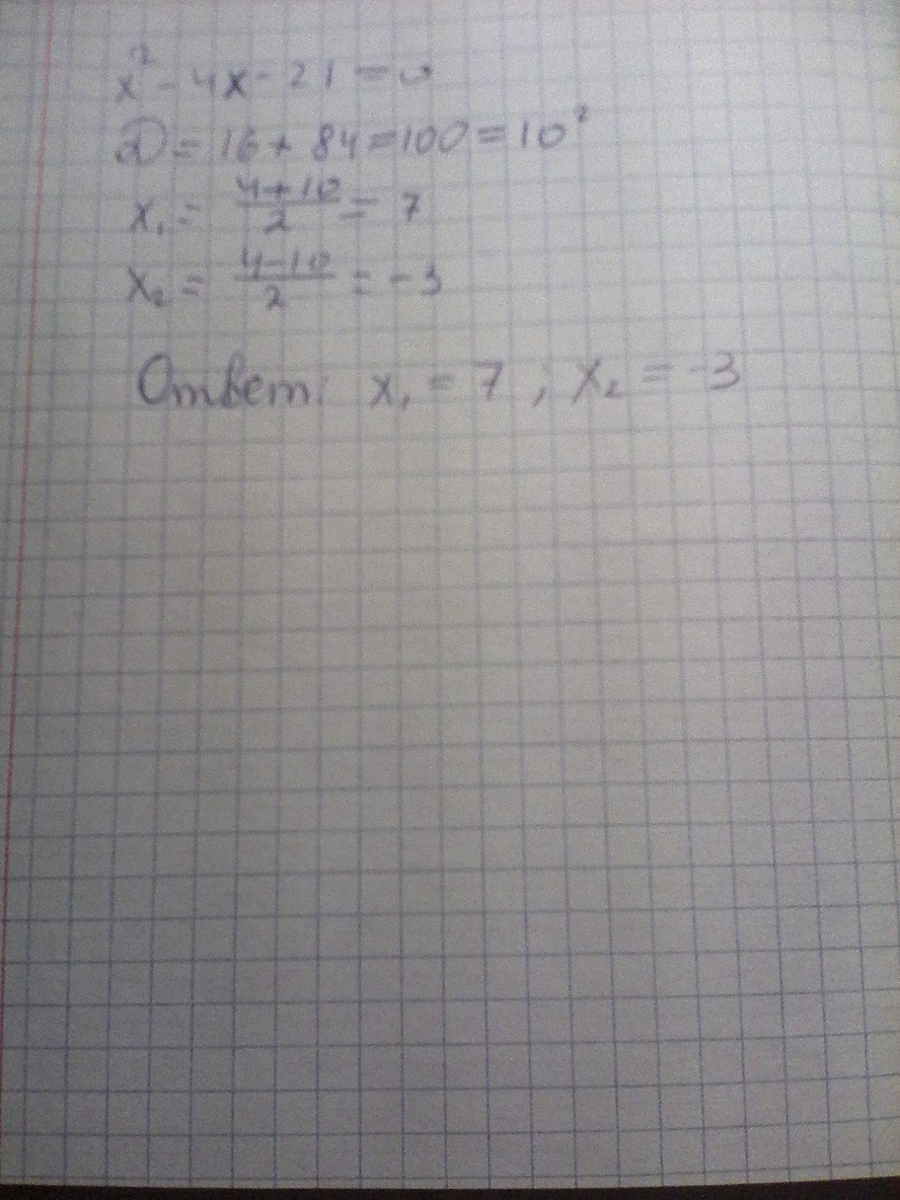 x² - 4x - 21 = 0
D = 16 + 84 = 100 = 10²
x₁ = (4+10)/2 = 7
x₂ = (4-10)/2 = -3
Ответ: x₁ = 7 , x₂ = -3